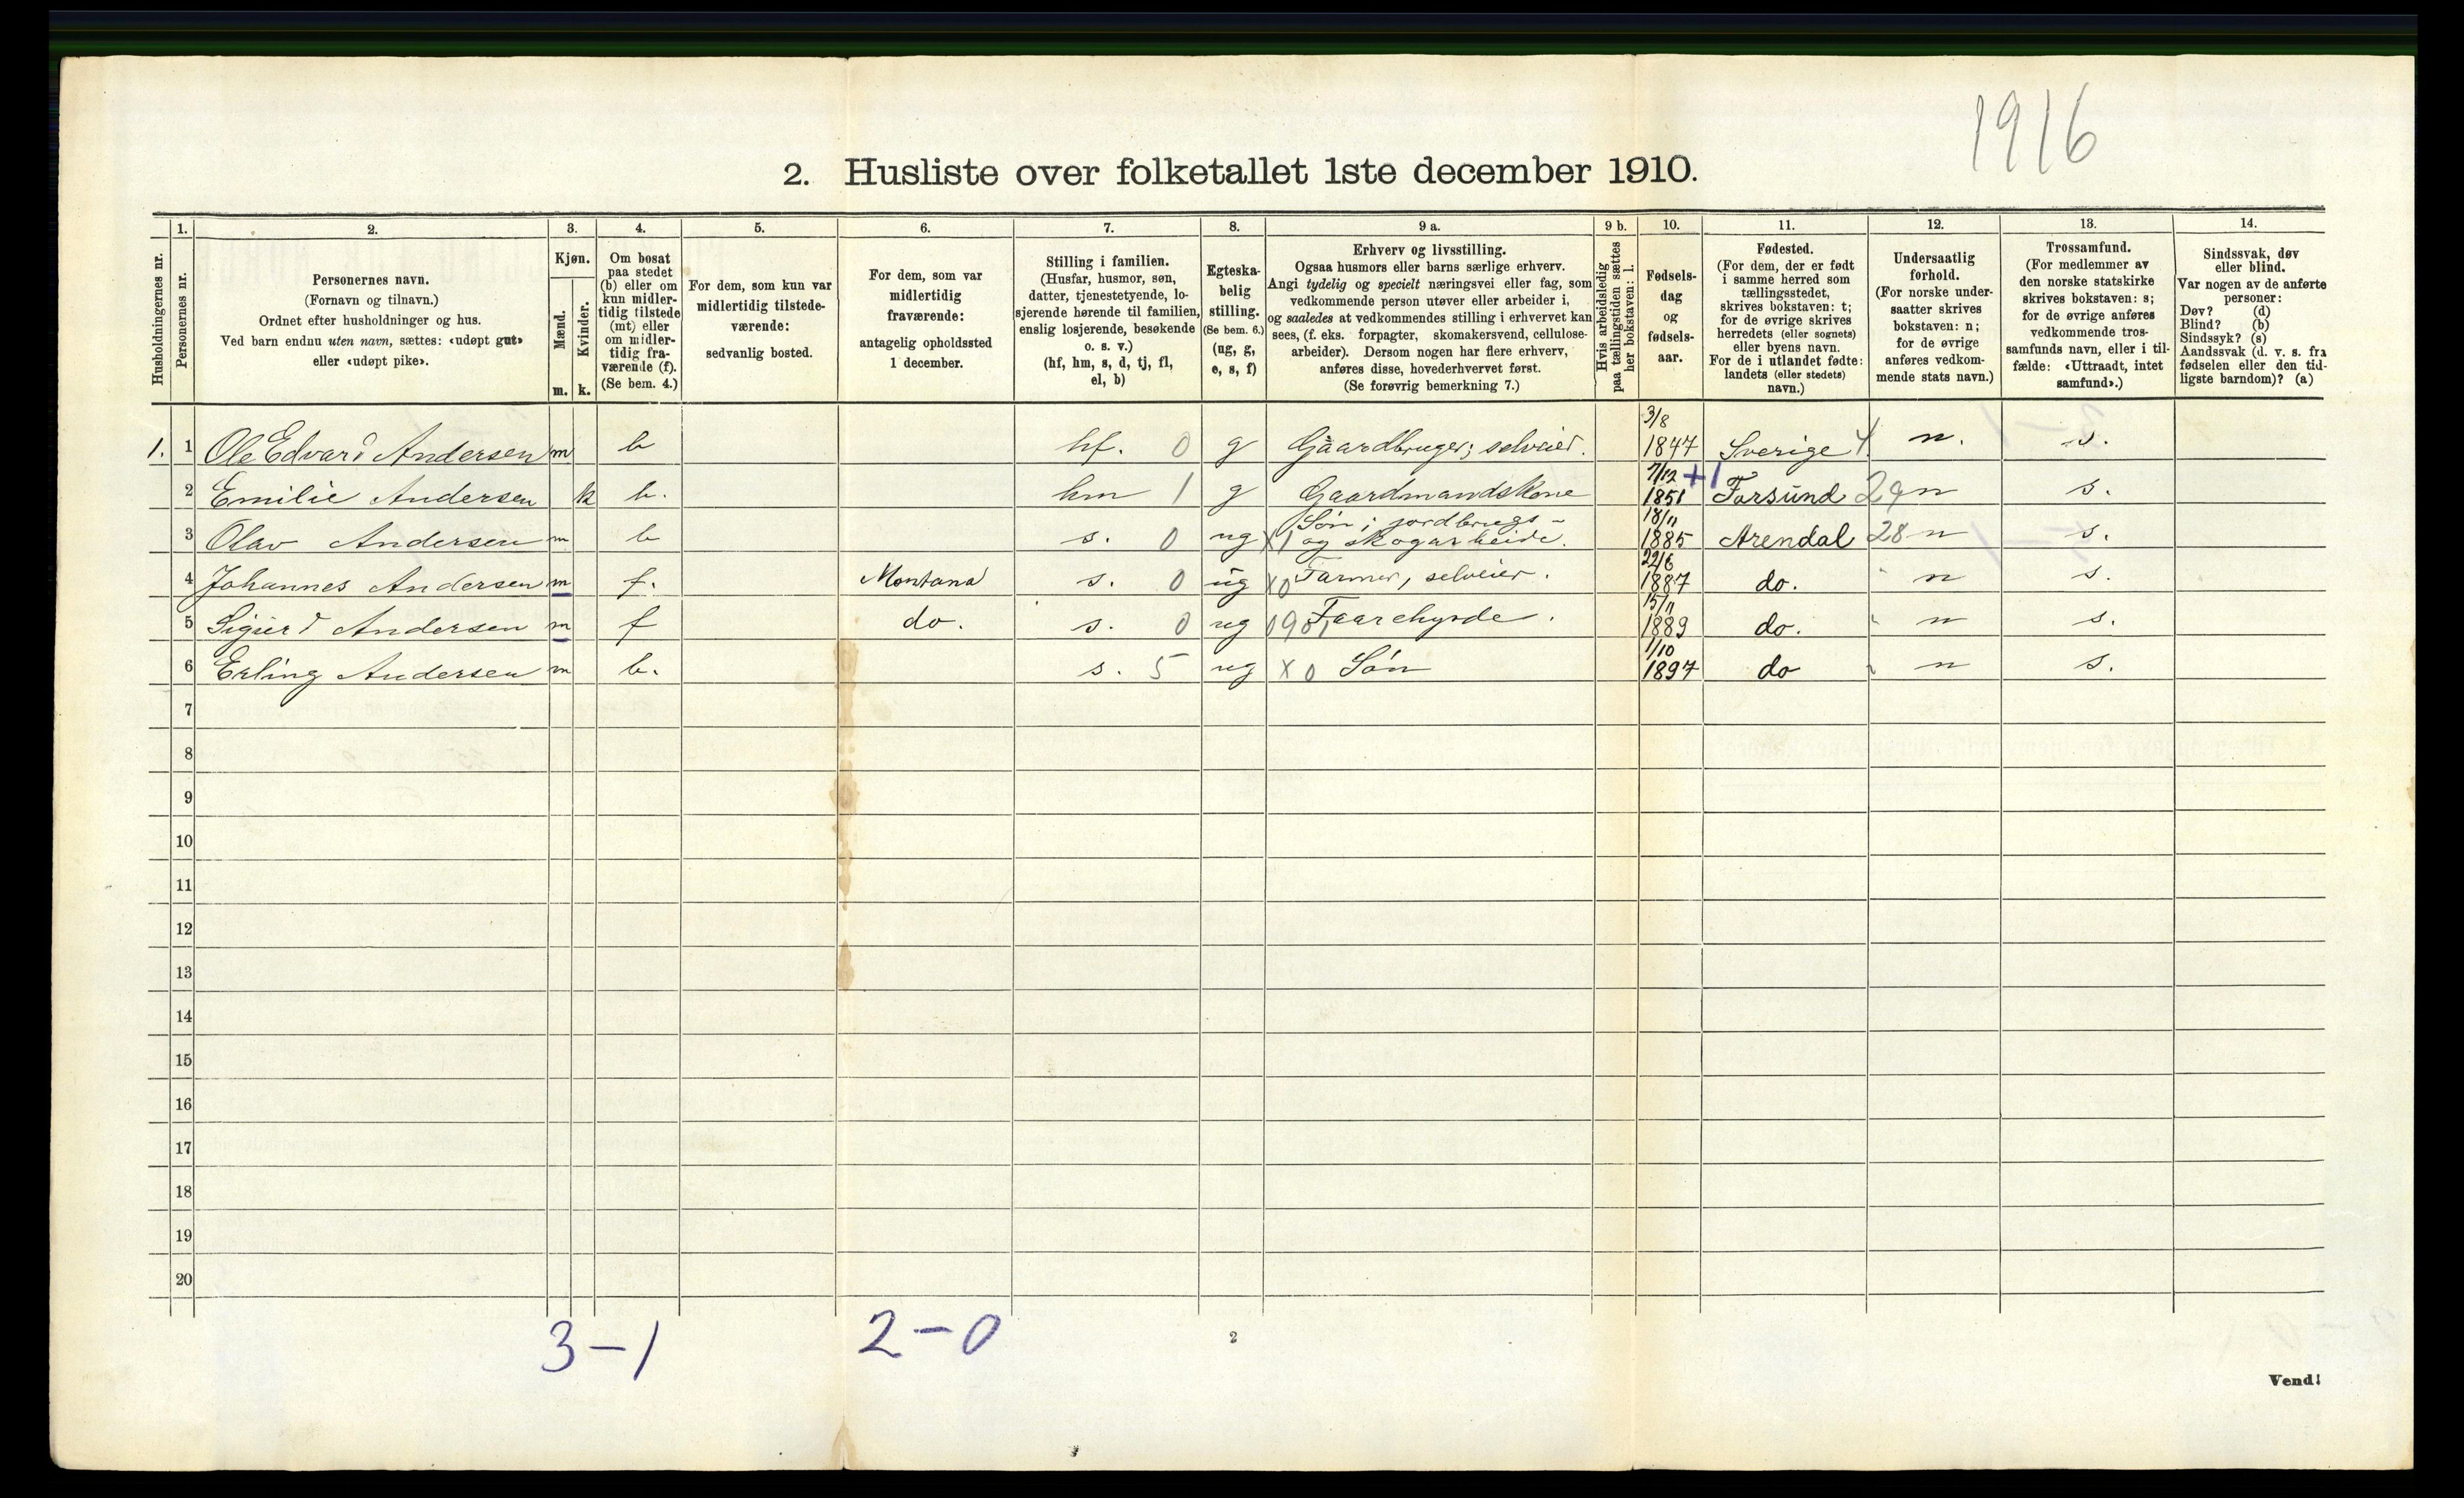 1916
2. Husliste over folketallet 1ste december 1910.
Husholdningernes nr.
1.
Personernes nr.
2.
Personernes navn.
(Fornavn og tilnavn.)
Ordnet efter husholdninger og hus.
Ved barn endnu uten navn, sættes: «udøpt gut»
eller «udøpt pike».
3.
Kjøn.
Mænd.
Kvinder.
m. k.
4.
Om bosat
paa stedet
(b) eller om
kun midler-
tidig tilstede
(mt) eller
om midler-
tidig fra-
værende (f).
(Se bem. 4.)
5.
For dem, som kun var
midlertidig tilstede-
værende:
sedvanlig bosted.
6.
For dem, som var
midlertidig
fraværende:
antagelig opholdssted
1 december.
7.
Stilling i familien.
(Husfar, husmor, søn,
datter, tjenestetyende, lo-
sjerende hørende til familien,
enslig losjerende, besøkende
o. s. v.)
(hf, hm, s, d, tj, fl,
el, b)
8.
Egteska-
belig
stilling.
(Se bem. 6.)
(ug, g,
e, s, f)
9 a.
Erhverv og livsstilling.
Ogsaa husmors eller barns særlige erhverv.
Angi tydelig og specielt næringsvei eller fag, som
vedkommende person utøver eller arbeider i,
og saaledes at vedkommendes stilling i erhvervet kan
sees, (f. eks. forpagter, skomakersvend, cellulose-
arbeider). Dersom nogen har flere erhverv,
anføres disse, hovederhvervet først.
(Se forøvrig bemerkning 7.)
9 b.
Hvis arbeidsledig
paa tællingstiden sættes
her bokstaven: l.
10.
Fødsels-
dag
og
fødsels-
aar.
11.
Fødested.
(For dem, der er født
i samme herred som
tællingsstedet,
skrives bokstaven: t;
for de øvrige skrives
herredets (eller sognets)
eller byens navn.
For de i utlandet fødte:
landets (eller stedets)
navn.)
12.
Undersaatlig
forhold.
(For norske under-
saatter skrives
bokstaven: n;
for de øvrige
anføres vedkom-
mende stats navn.)
13.
Trossamfund.
(For medlemmer av
den norske statskirke
skrives bokstaven: s;
for de øvrige anføres
vedkommende tros-
samfunds navn, eller i til-
fælde: «Uttraadt, intet
samfund».)
14.
Sindssvak, døv
eller blind.
Var nogen av de anførte
personer:
Døv? (d)
Blind? (b)
Sindssyk? (s)
Aandssvak (d. v. s. fra
fødselen eller den tid-
ligste barndom)? (a)
1. 1 Ole Edvard Andersen m b hf. 0 g Gaardbruger; selveier. 3/8 1847 Sverige 4 n. s.
2 Emilie Andersen k b. hm 1 g Gaardmandskone 7/12 1851 +1 Farsund 29 n s.
3 Olav Andersen m b s. 0 ug X1 Søn; jordbrugs- og skogarbeide. 18/11 1885 Arendal 28 n s.
4 Johannes Andersen m f. Montana s. 0 ug X0 Farmer, selveier. 22/6 1887 do. " n s.
5 Sigurd Andersen m f do. s. 0 ug Faarehyrde. 15/11 1889 do. " n s.
6 Erling Andersen m b. s. 5 ug X0 Søn 1/10 1897 do " n s.
7
8
9
10
11
12
13
14
15
16
17
18
19
20
3-1 2-0
2
Vend!